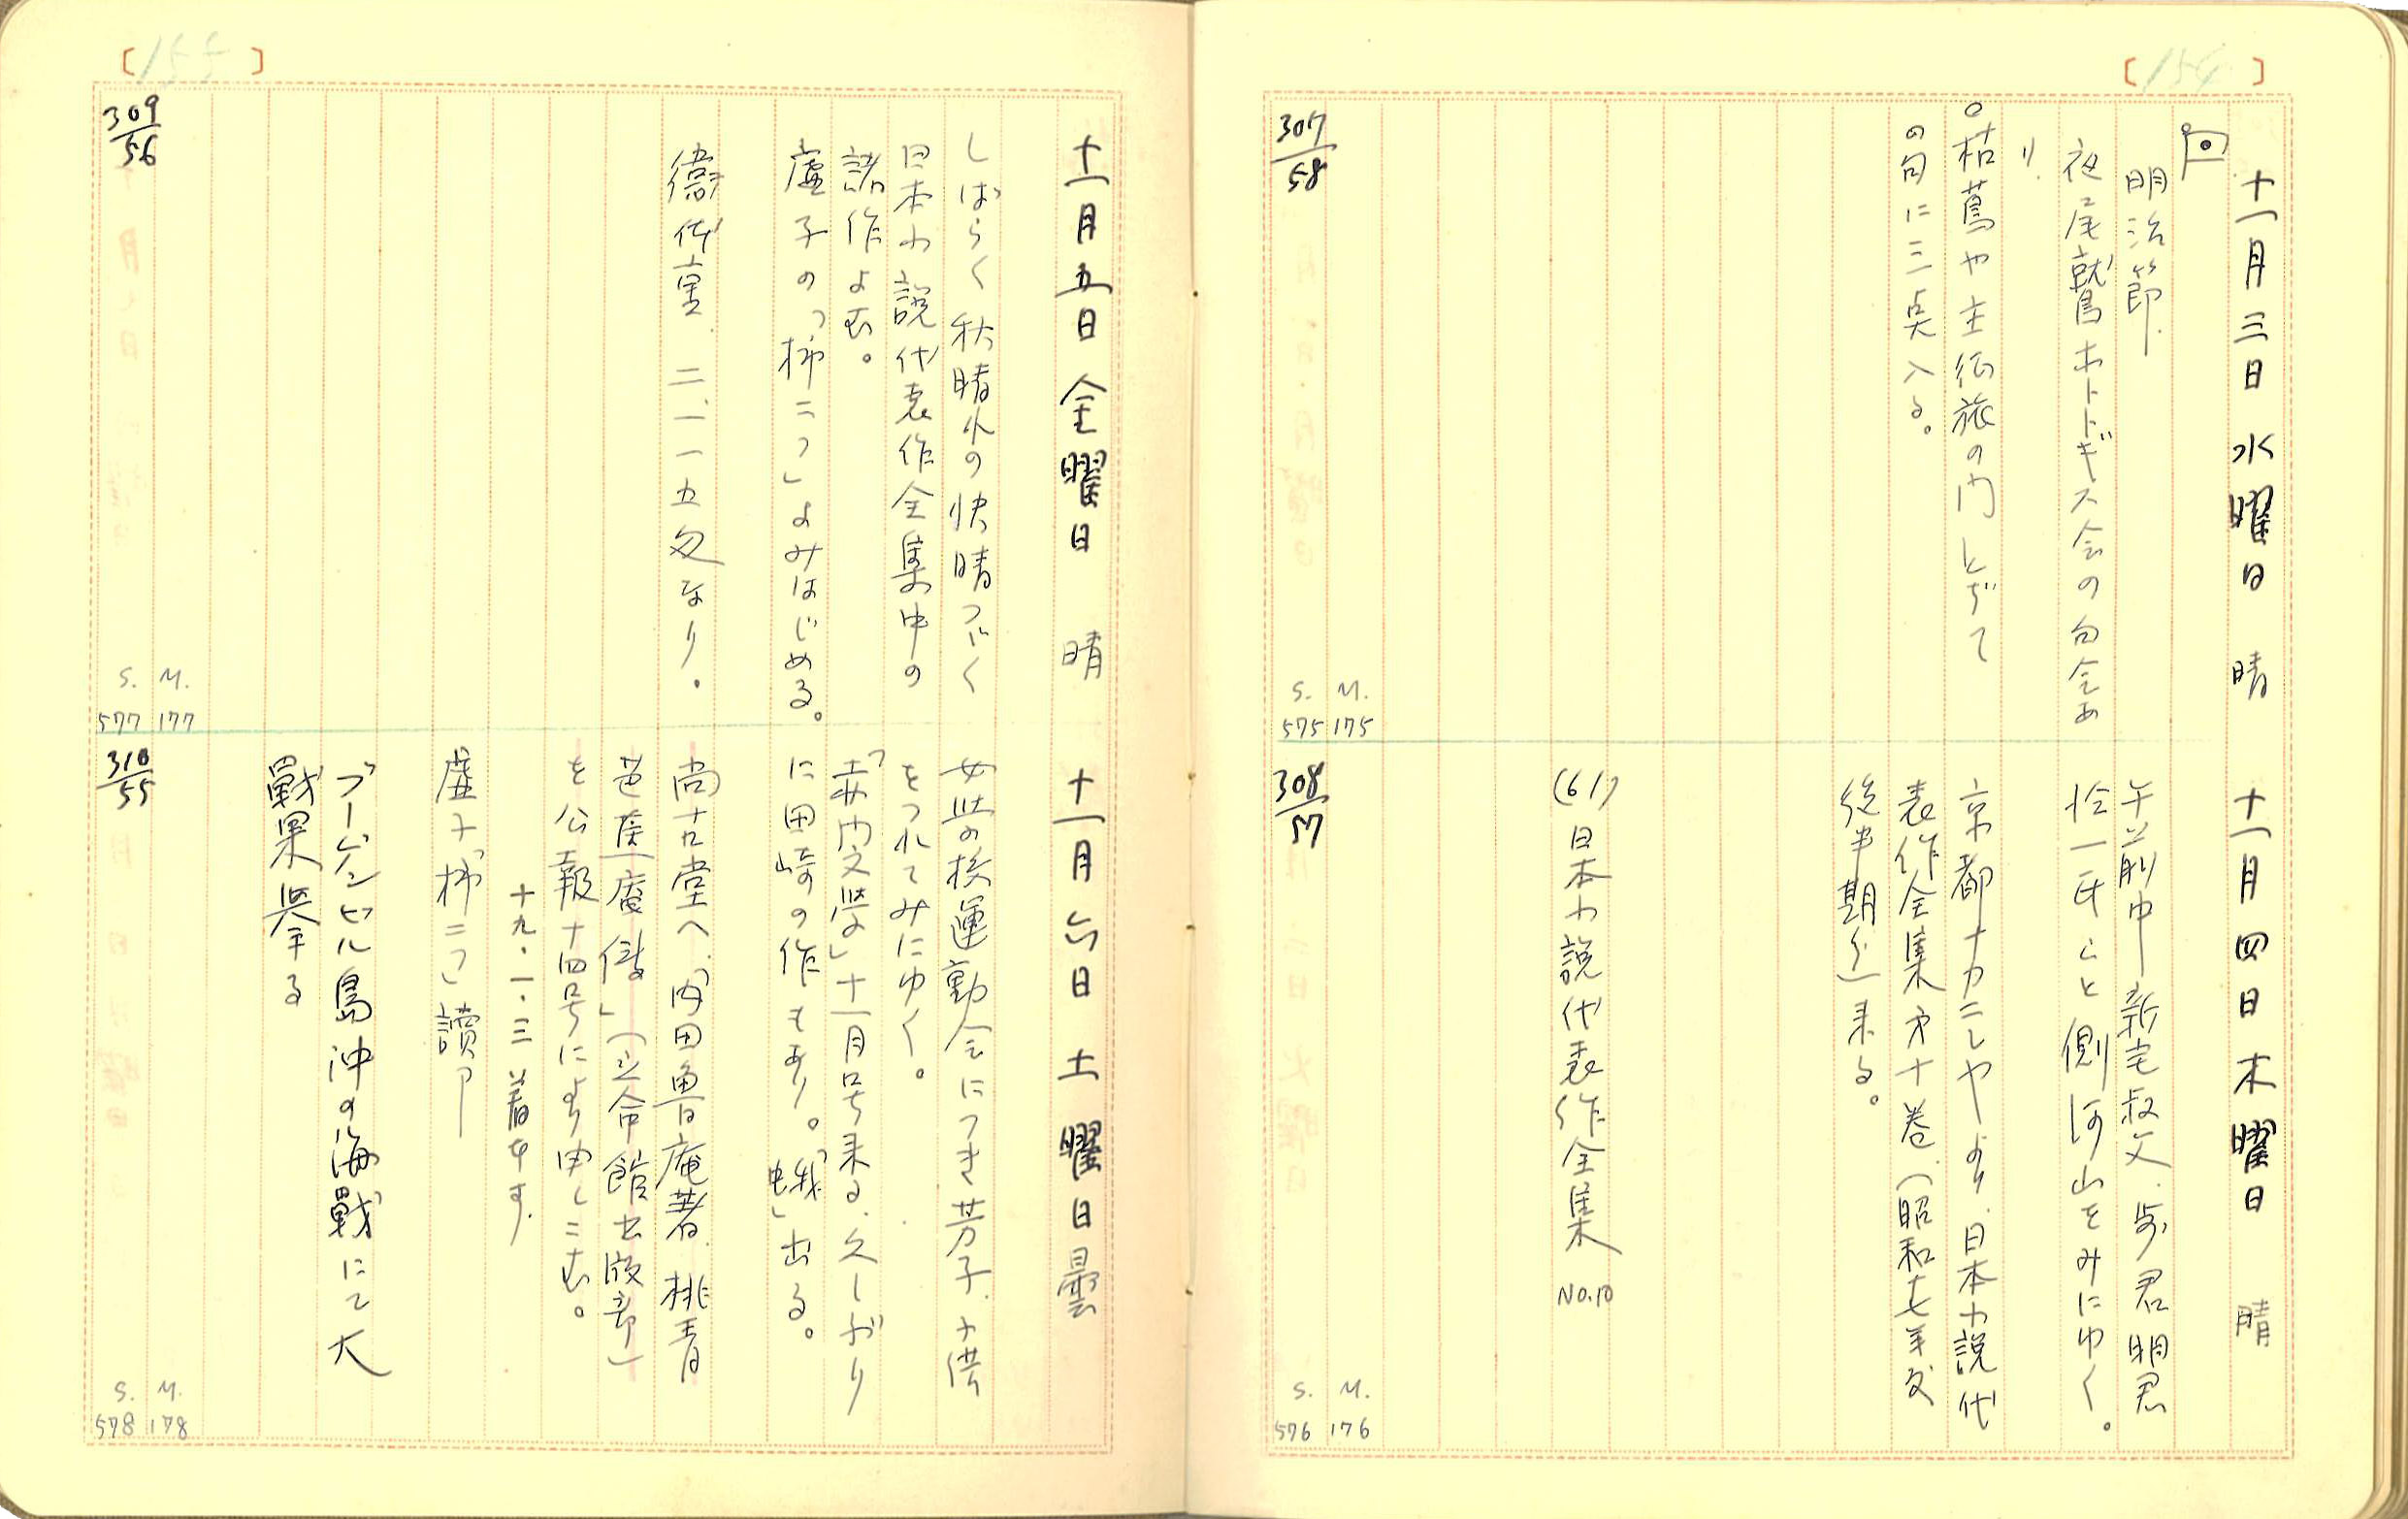 [154]
十一月三日 水曜日 晴
明治節.
夜尾鷲ホトトギス会の句会あ
り.
○枯蔦や主征旅の門とぢて
の句に三点入る。
307/58
S. M.
575 175
十一月四日 木曜日 晴
午前中新宅叔父.歩君明君
怜一氏らと側河山をみにゆく。
京都ナカニシヤより.日本小説代
表作全集第十巻.(昭和十七年度
後半期分)来る。
(61)日本小説代表作全集 NO.10
308/57
S. M.
576 176
[155]
十一月五日 金曜日 晴
しばらく秋晴れの快晴つゞく
日本小説代表作全集中の
諸作よむ。
虚子の「柿二つ」よみはじめる。
衛作重.二.一一五匁なり.
309/56
S. M.
577 177
十一月六日 土曜日 曇
女学校運動会につき芳子.子供
をつれてみにゆく。
「赤門文學」十一月号来る.久しぶり
に田崎の作もあり。「蛾」出る。
尚古堂へ.「内田魯庵著.桃青
芭蕉庵傳」(立命館出版部)
を公報十四号により申しこむ。
十九.一.三 着本す.
虚子「柿二つ」讀了
ブーゲンビル島沖の海戰にて大
戰果擧る
310/55
S. M.
578 178